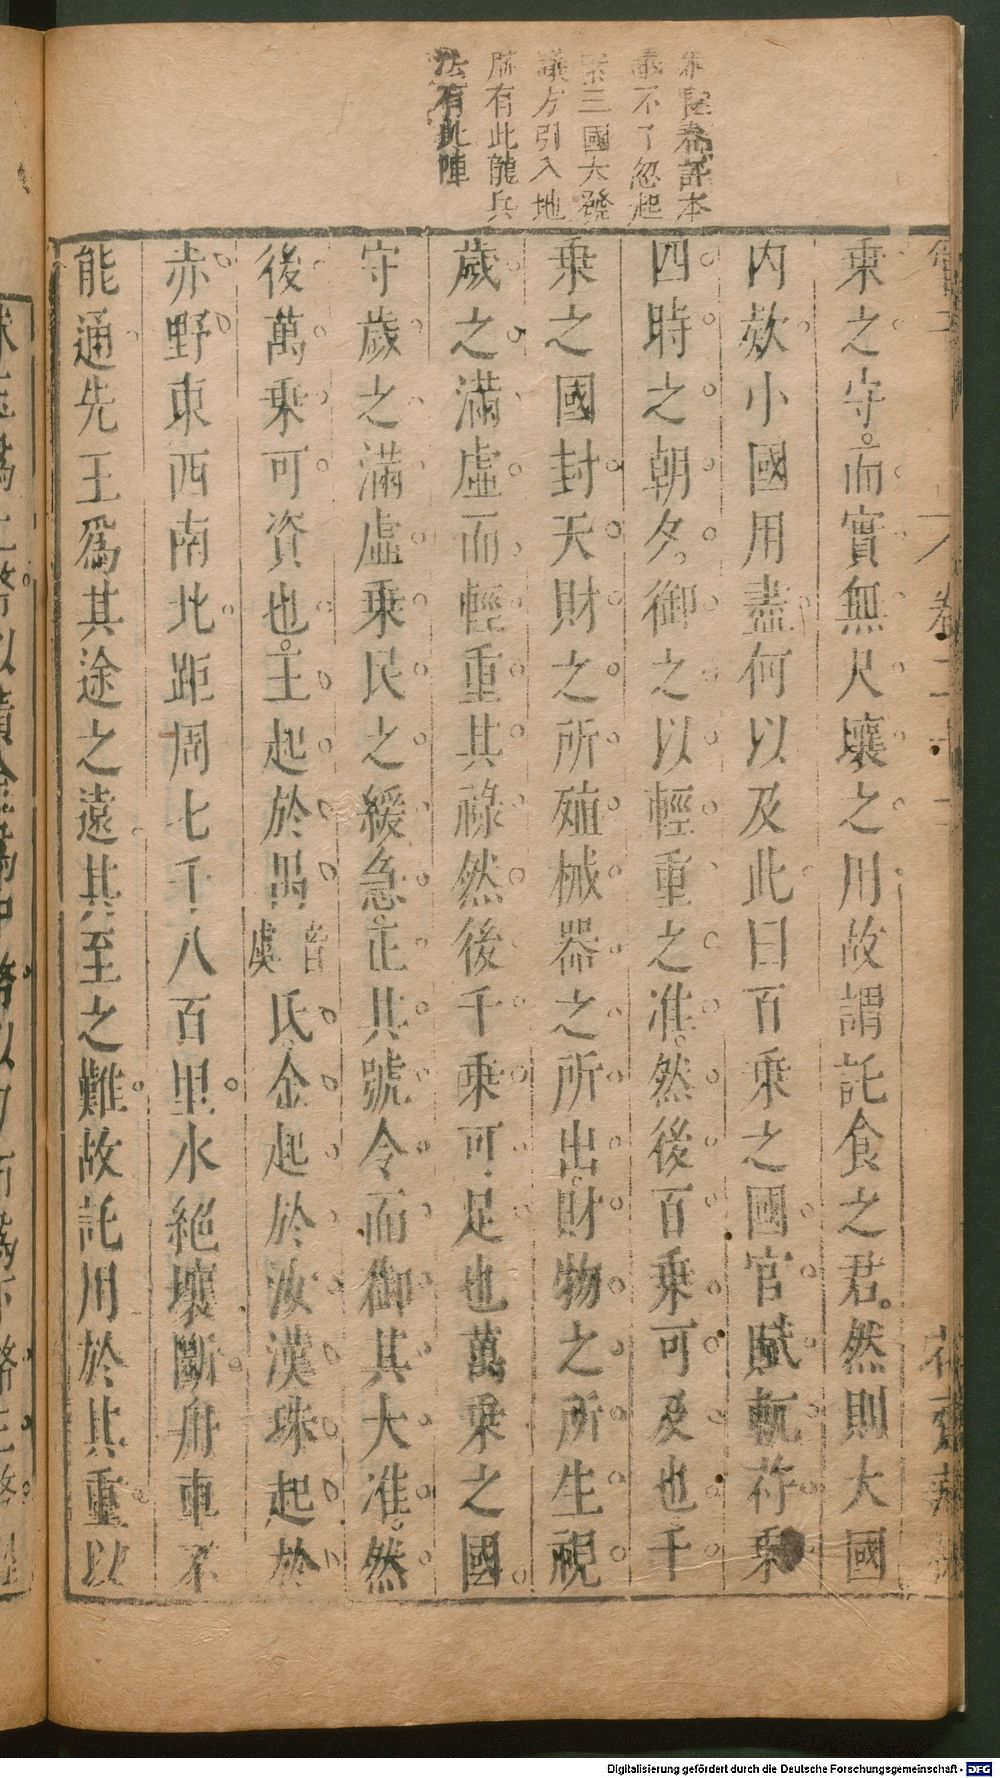 朱長春評本
議不了忽起
案三國大發
議方引入地
脉有此龍兵
法有此陣
乗之守而實無尺壤之用故謂託食之君然則大國
内欵小國用盡何以及此曰百乗之國官賦軌符乗
四時之朝夕御之以輕重之准然後百乗可及也千
乗之國封天財之所殖械器之所出財物之所生視
歲之滿虛而輕重其祿然後千乗可足也萬乗之國
守歲之滿虛乗民之緩急正其號令而御其大准然
後萬乗可資也玉起於禺音虞氏金起於汝漢珠起於
赤野東西南北距周七千八百里水絕壤斷舟車不
能通先王爲其途之遠其至之難故託用於其重以
卷二十二
花齋藏板
Digitalisierung gefördert durch die Deutsche Forschungsgemeinschaft - DFG